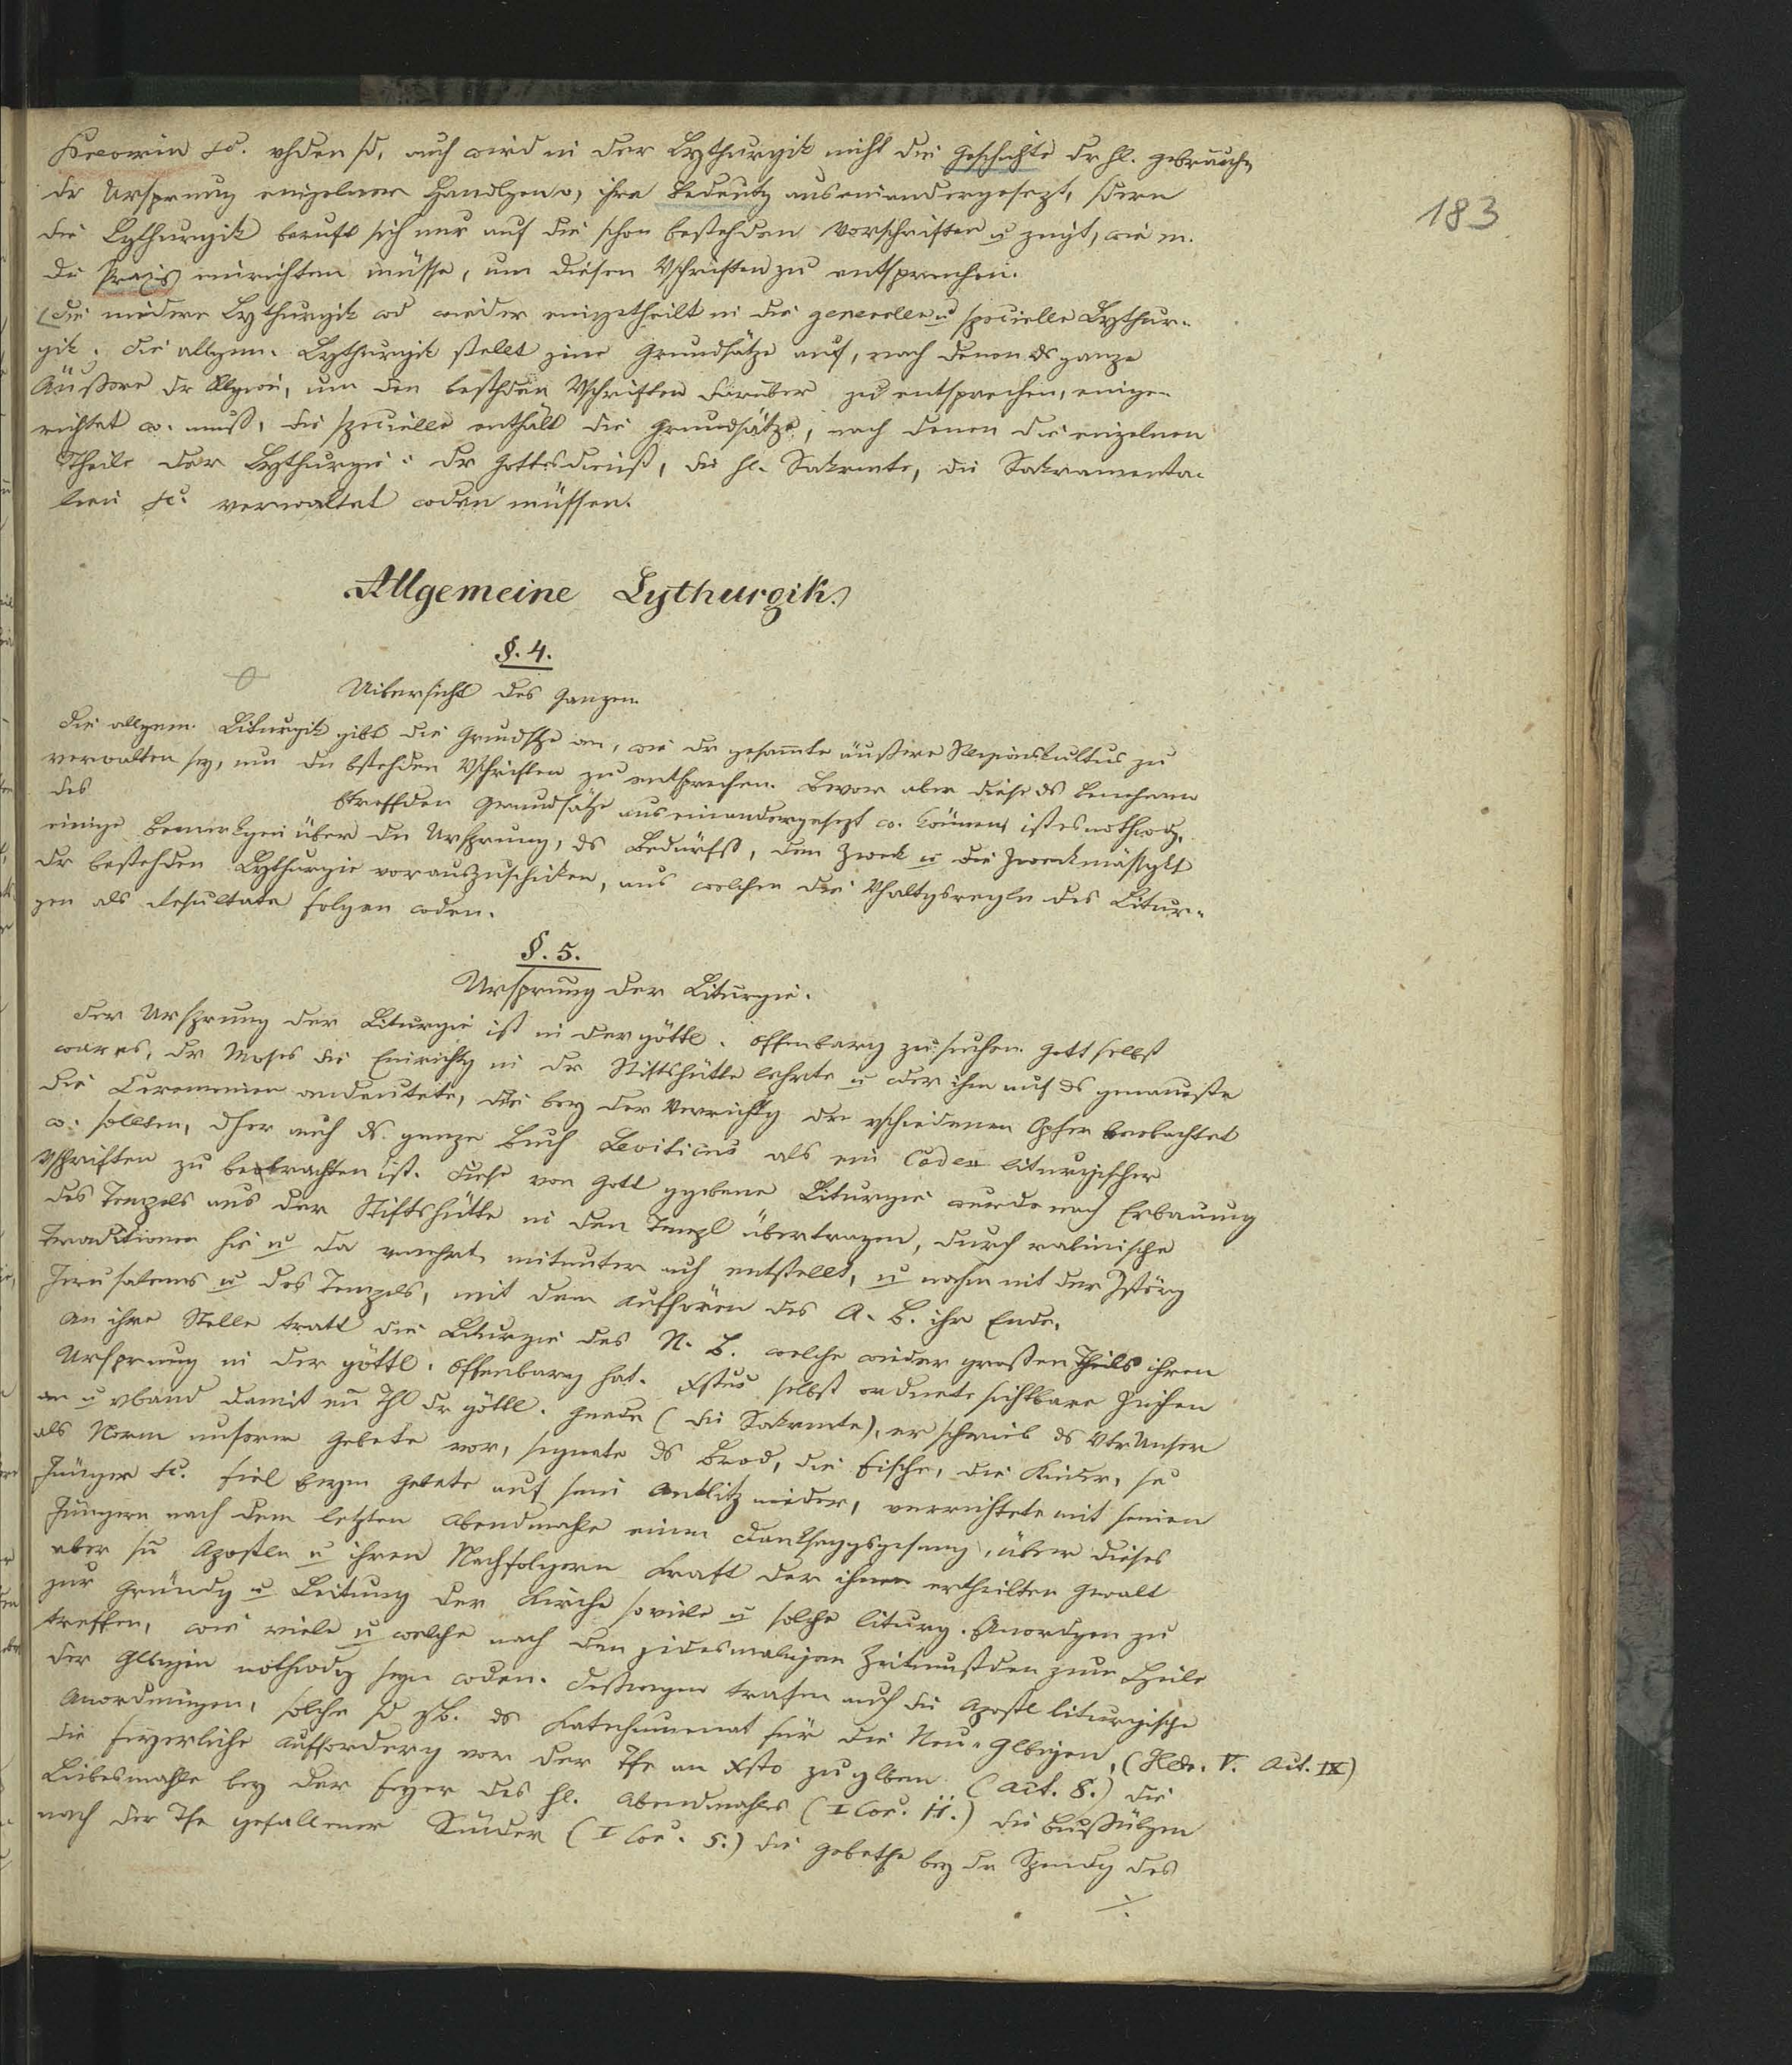 183
etc. auch wird in der Lythurgik nicht die Geschichte dr hl. Gebräuche,
dr Ursprung einzelner Handlgen, ihre Bedeutg auseinandergesezt, sdern
die Lythurgik beruft sich nur auf die schon bestehden Vorschriften u zeigt, wie m.
die Praxis einrichten müsse, um diesen Vschriften zu entsprechen.
Die niedere Lythurgik wd wieder eingetheilt in die generelle u specielle Lythur-
gik. Die allgem. Lythurgik stellt jene Grundsätze auf, nach denen ds ganze
Äußere dr Religion, um den besthden Vschriften darüber zu entsprechen, einge-
richtet w. muß, die specielle enthält die Grundsätze, nach denen die einzelnen
Theile der Lythurgie: dr Gottesdienst, die hl. Sakrmte, die Sakramenta-
lien etc. verwaltet wden müssen.
Allgemeine Lythurgik.
§. 4.
Uibersicht des Ganzen.
Die allgem. Liturgik gibt die Grundstze an, wie dr gesammte äußere Religionskultus zu
verwalten sey, um den bstehden Vschriften zu entsprechen. Bevor aber diese ds Benehmen
des btreffden Grundsätze auseinandergesezt w. können, ist es nothwdg,
einige Bemerkgen über den Ursprung, ds Bedürfß, den Zweck u die Zweckmässgkt
dr bestehden Lythurgie vorauszuschicken, aus welchen die Vhaltgsregeln des Litur-
gen als Resultate folgen wden.
§. 5.
Ursprung der Liturgie.
Der Ursprung der Liturgie ist in der göttl. Offenbarg zu suchen. Gott selbst
war es, dr Moses die Einrichtg in dr Stiftshütte lehrte u der ihm auf ds genaueste
die Ceremonien andeutete, die bey der Verrichtg der vschiedenen Opfer beobachtet
w. sollten, dher auch ds ganze Buch Leviticus als ein Codex liturgischer
Vschriften zu betrachten ist. Diese von Gott ggebene Liturgie wurde nach Erbauung
des Tempels aus der Stiftshütte in den Tempel übertragen, durch rabinische
Traditionen hie u da vmehrt, mitunter auch entstellt, u nahm mit der Zstörg
Jerusalems u des Tempels, mit dem Aufhören des A. B. ihr Ende.
An ihre Stelle tratt die Liturgie des N. B. welche wieder großen Theils ihren
Ursprung in der göttl. Offenbarg hat. Xstus selbst ordnete sichtbare Zeichen
an u vband damit en Thl dr göttl. Gnade (die Sakrmte), er schrieb ds Vtr Unser
als Norm unserer Gebete vor, segnete ds Brod, die Fische, die Kinder, se
Jünger etc. fiel beym Gebete auf sein Antlitz nieder, verrichtete mit seinen
Jüngern nach dem letzten Abendmahle einen Danksaggsgesang, über dieses
aber sn Aposteln u ihren Nachfolgern Kraft der ihnen ertheilten Gewalt
zur Gründg u Leitung der Kirche soviele u solche liturg. Anordgen zu
treffen, wie viele u welche nach den jedesmaligen Zeitumstden zum Heile
der Glbigen nothwdg seyn wden. Deßwegen trafen auch die Apostl liturgische
Anordnungen, solche sd zB. ds Katechumenat für die Neu-Glbigen, (Hebr. V. Act. IX)
die feyerliche Aufforderg vor der Tfe an Xsto zu glben (Act. 8.) die
Liebesmahle bey der Feyer des hl. Abendmahles (I Cor. 11.) die Bußübgen
nach der Tfe gefallener Sünder (I Cor. 5.) die Gebethe bey dr Spendg des